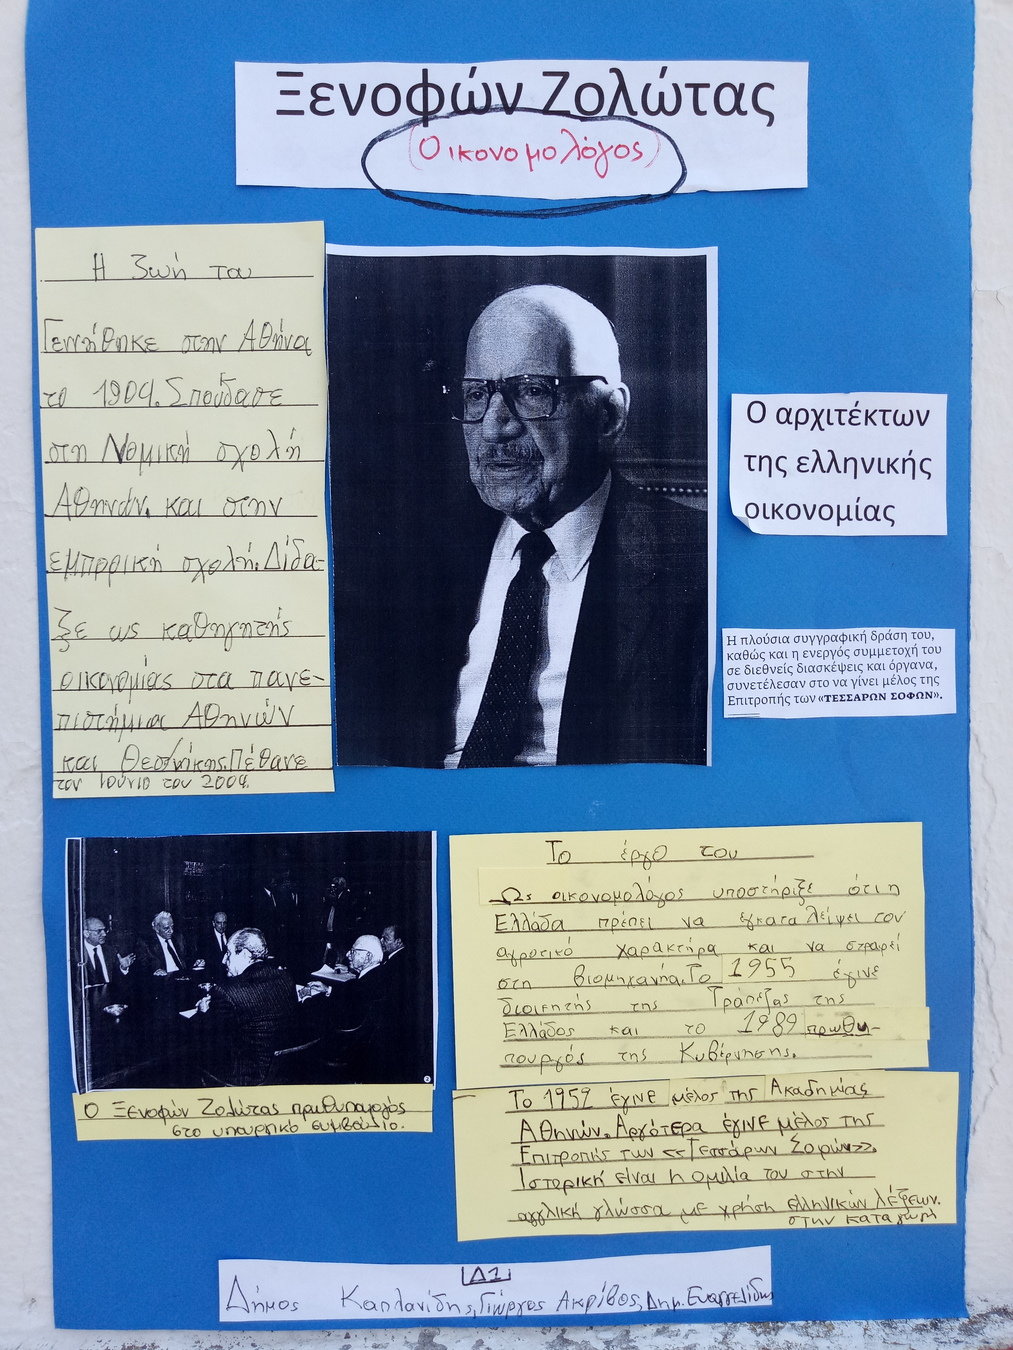 Ξενοφών Ζολώτας
(Οικονομολόγος)
Η ζωή του
Γεννήθηκε στην Αθήνα
το 1904. Σπούδασε
στη Νομική σχολή
Αθηνών. και στην
εμπορική σχολή. Δίδα-
ξε ως καθηγητής
οικονομίας στα πανε-
πιστήμια Αθηνών
και Θεσ/νίκης. Πέθανε
τον Ιούνιο του 2004.
Ο αρχιτέκτων
της ελληνικής
οικονομίας
Η πλούσια συγγραφική δράση του,
καθώς και η ενεργός συμμετοχή του
σε διεθνείς διασκέψεις και όργανα,
συνετέλεσαν στο να γίνει μέλος της
Επιτροπής των «ΤΕΣΣΑΡΩΝ ΣΟΦΩΝ».
Ο Ξενοφών Ζολώτας πρωθυπουργός
στο υπουργικό συμβούλιο.
Το έργο του
Ως οικονομολόγος υποστήριξε ότι η
Ελλάδα πρέπει να εγκαταλείψει τον
αγροτικό χαρακτήρα και να στραφεί
στη βιομηχανία. Το 1955 έγινε
διοικητής της Τράπεζας της
Ελλάδος και το 1989 πρωθυ-
πουργός της Κυβέρνησης.
Το 1952 έγινε μέλος της Ακαδημίας
Αθηνών. Αργότερα έγινε μέλος της
Επιτροπής των «Τεσσάρων Σοφών».
Ιστορική είναι η ομιλία του στην
αγγλική γλώσσα με χρήση ελληνικών λέξεων.
στην καταγωγή
Δ1
Δήμος Καπλανίδης, Γιώργος Ακρίβος, Δημ. Ευαγγελίδης